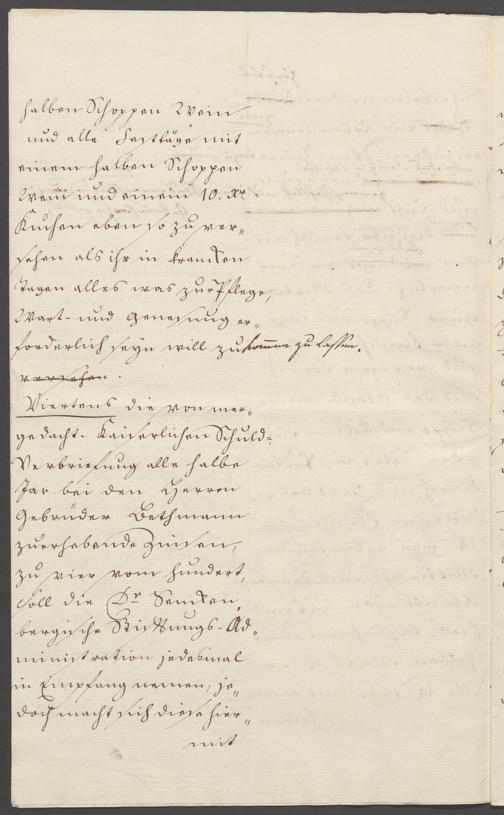 halben Schoppen Wein
und alle Festtäge mit
einem halben Schoppen
Wein und einem 10. Xr
Kuchen eben so zu ver„
sehen als ihr in kranken
Tagen alles was zur Pflege,
Wart- und Genesung er„
forderlich seyn will zukommen zu lassen.
versehen.
Viertens die von mer„
gedacht- Kaiserlichen Schuld=
Verbriefung alle halbe
Jar bei den Herren
Gebrüder Bethmann
zuerhebende Zinsen,
zu vier vom hundert,
soll die Dr Senken„
bergische Stiftungs-Ad„
ministration jedesmal
in Empfang nemen, je„
doch macht sich diese hier„
mit